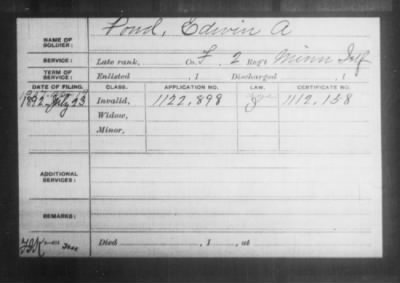 NAME OF SOLDIER: Pond, Edwin A
SERVICE: Late rank, Co. F, 2 Reg't Minn Inf
TERM OF SERVICE: Enlisted , 1 Discharged , 1
DATE OF FILING. CLASS. APPLICATION NO. LAW. CERTIFICATE NO.
1892 July 23 Invalid, 1122,898 1112,158
Widow,
Minor,
ADDITIONAL SERVICES:
REMARKS:
Died , 1 , at